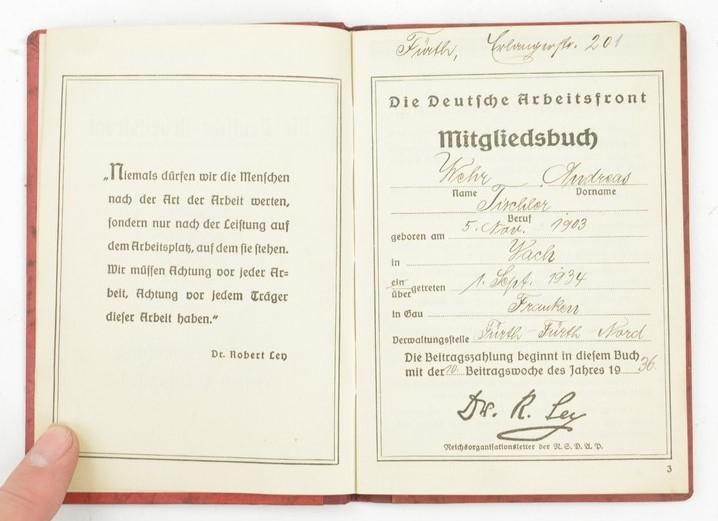 „Niemals dürfen wir die Menschen
nach der Art der Arbeit werten,
sondern nur nach der Leistung auf
dem Arbeitsplatz, auf dem sie stehen.
Wir müssen Achtung vor jeder Ar=
beit, Achtung vor jedem Träger
dieser Arbeit haben.“
Dr. Robert Ley
Fürth, Erlangerstr. 201
Die Deutsche Arbeitsfront
Mitgliedsbuch
Wehr Andreas
Name Vorname
Tischler
Beruf
geboren am 5. Nov. 1903
in Vach
ein
übergetreten 1. Sept. 1934
in Gau Franken
Verwaltungsstelle Fürth - Fürth - Nord
Die Beitragszahlung beginnt in diesem Buch
mit der 10. Beitragswoche des Jahres 1936.
Dr. R. Ley
Reichsorganisationsleiter der N.S.D.A.P.
3